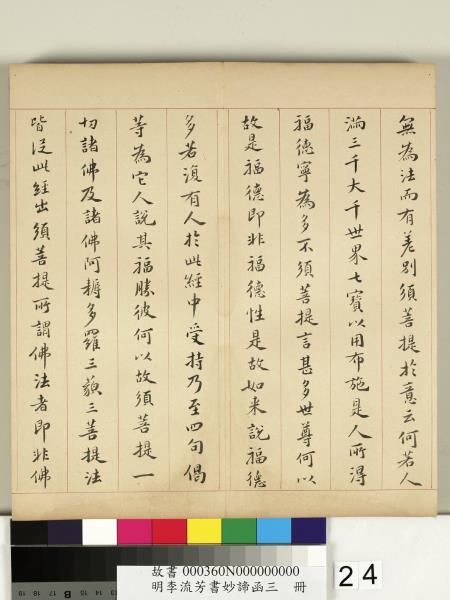 無為法而有差別須菩提於意云何若人
滿三千大千世界七寶以用布施是人所得
福德寧為多不須菩提言甚多世尊何以
故是福德即非福德性是故如来說福德
多若復有人於此經中受持乃至四句偈
等為它人說其福勝彼何以故須菩提一
切諸佛及諸佛阿耨多羅三藐三菩提法
皆從此經出須菩提所謂佛法者即非佛
故書 000360N000000000
明李流芳書妙諦函三 冊
24